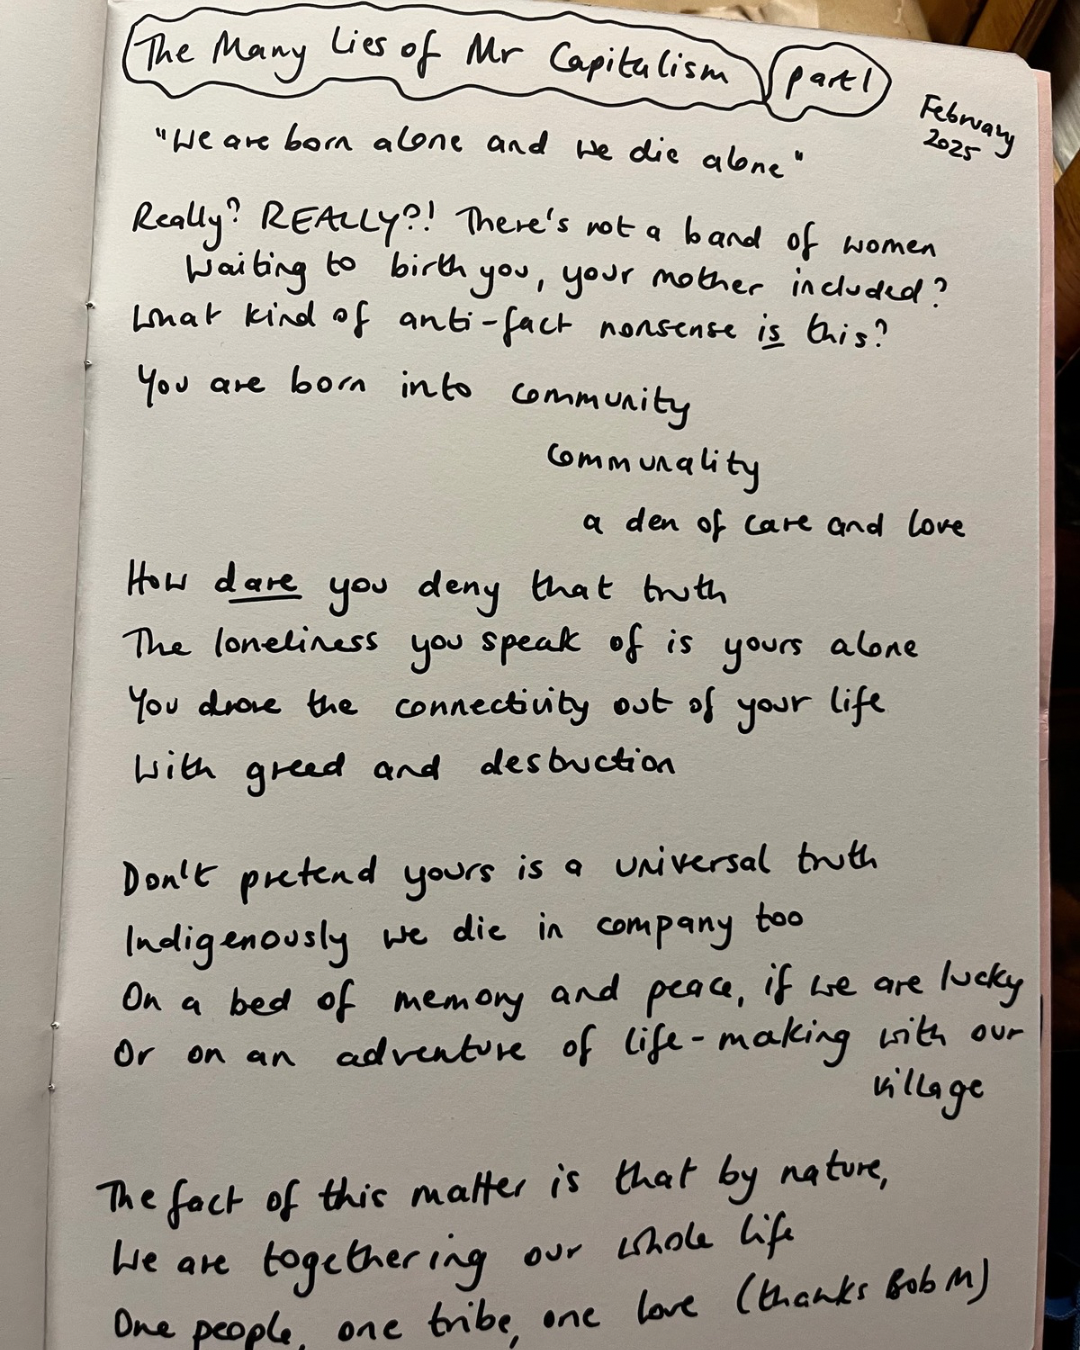 The Many Lies of Mr Capitalism part 1
February
2025
"We are born alone and we die alone"
Really? REALLY?! There's not a band of women
waiting to birth you, your mother included?
What kind of anti-fact nonsense is this?
You are born into community
communality
a den of care and love
How dare you deny that truth
The loneliness you speak of is yours alone
You drove the connectivity out of your life
With greed and destruction
Don't pretend yours is a universal truth
Indigenously we die in company too
On a bed of memory and peace, if we are lucky
Or on an adventure of life-making with our
village
The fact of this matter is that by nature,
We are togethering our whole life
One people, one tribe, one love (thanks Bob M)